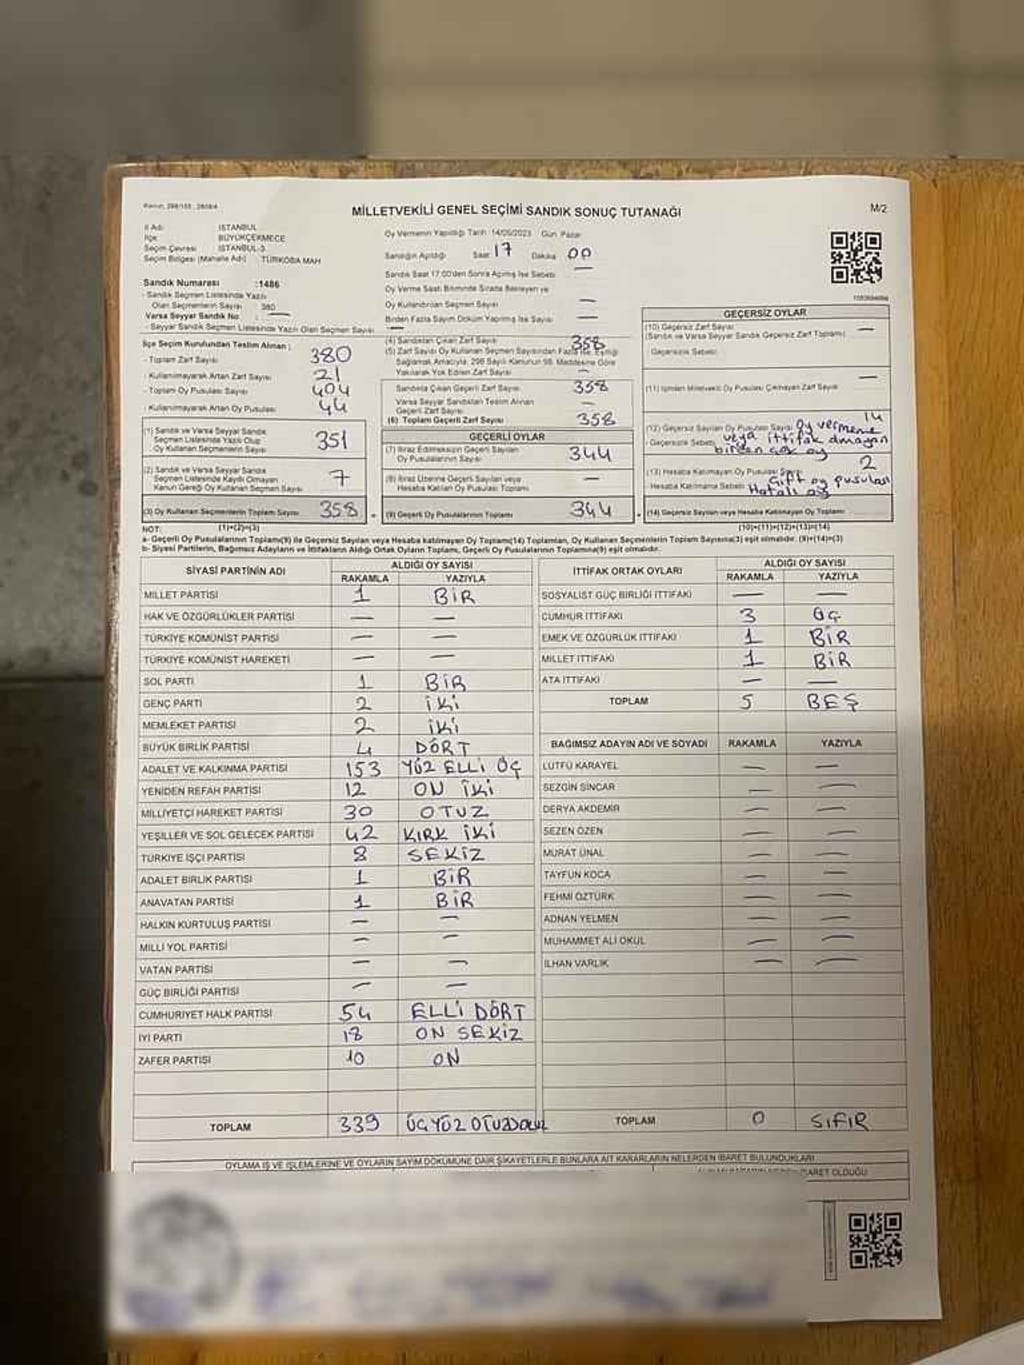 MİLLETVEKİLİ GENEL SEÇİMİ SANDIK SONUÇ TUTANAĞI
M/2
İl Adı : İSTANBUL
İlçe : BÜYÜKÇEKMECE
Seçim Çevresi : İSTANBUL-3
Seçim Bölgesi (Mahalle Adı) : TÜRKOBA MAH
Sandık Numarası :1486
- Sandık Seçmen Listesinde Yazılı
Olan Seçmenlerin Sayısı : 380
Varsa Seyyar Sandık No : —
- Seyyar Sandık Seçmen Listesinde Yazılı Olan Seçmen Sayısı : —
Oy Vermenin Yapıldığı Tarih :14/05/2023 Gün :Pazar
Sandığın Açıldığı Saat :17 Dakika :00
Sandık Saat 17.00'den Sonra Açılmış İse Sebebi : —
Oy Verme Saati Bitiminde Sırada Bekleyen ve
Oy Kullandırılan Seçmen Sayısı : —
Birden Fazla Sayım Döküm Yapılmış İse Sayısı : —
İlçe Seçim Kurulundan Teslim Alınan ;
- Toplam Zarf Sayısı : 380
- Kullanılmayarak Artan Zarf Sayısı : 21
- Toplam Oy Pusulası Sayısı : 404
- Kullanılmayarak Artan Oy Pusulası : 44
(1) Sandık ve Varsa Seyyar Sandık
Seçmen Listesinde Yazılı Olup
Oy Kullanan Seçmenlerin Sayısı 351
(2) Sandık ve Varsa Seyyar Sandık
Seçmen Listesinde Kaydı Olmayan
Kanun Gereği Oy Kullanan Seçmen Sayısı 7
(3) Oy Kullanan Seçmenlerin Toplam Sayısı 358
(4) Sandıktan Çıkan Zarf Sayısı 358
(5) Zarf Sayısı Oy Kullanan Seçmen Sayısından Fazla ise, Eşitliği
Sağlamak Amacıyla, 298 Sayılı Kanunun 98. Maddesine Göre
Yakılarak Yok Edilen Zarf Sayısı : —
Sandıkta Çıkan Geçerli Zarf Sayısı : 358
Varsa Seyyar Sandıktan Teslim Alınan
Geçerli Zarf Sayısı —
(6) Toplam Geçerli Zarf Sayısı : 358
GEÇERLİ OYLAR
(7) İtiraz Edilmeksizin Geçerli Sayılan
Oy Pusulalarının Sayısı : 344
(8) İtiraz Üzerine Geçerli Sayılan veya
Hesaba Katılan Oy Pusulaları Toplamı : —
(9) Geçerli Oy Pusulalarının Toplamı : 344
GEÇERSİZ OYLAR
(10) Geçersiz Zarf Sayısı —
(Sandık ve Varsa Seyyar Sandık Geçersiz Zarf Toplamı)
Geçersizlik Sebebi :
(11) İçinden Milletvekili Oy Pusulası Çıkmayan Zarf Sayısı : —
(12) Geçersiz Sayılan Oy Pusulası Sayısı : 14
- Geçersizlik Sebebi : oy vermeme
veya ittifak olmayan
birden çok oy
(13) Hesaba Katılmayan Oy Pusulası Sayısı : 2
- Hesaba Katılmama Sebebi : Çift oy pusulası
Hatalı oy
(14) Geçersiz Sayılan veya Hesaba Katılmayan Oy Toplamı :
NOT: (1)+(2)=(3) (10)+(11)+(12)+(13)=(14)
a- Geçerli Oy Pusulalarının Toplamı(9) ile Geçersiz Sayılan veya Hesaba katılmayan Oy Toplamı(14) Toplamları, Oy Kullanan Seçmenlerin Toplam Sayısına(3) eşit olmalıdır. (9)+(14)=(3)
b- Siyasi Partilerin, Bağımsız Adayların ve İttifakların Aldığı Ortak Oyların Toplamı, Geçerli Oy Pusulalarının Toplamına(9) eşit olmalıdır.
SİYASİ PARTİNİN ADI ALDIĞI OY SAYISI
RAKAMLA YAZIYLA
MİLLET PARTİSİ 1 BİR
HAK VE ÖZGÜRLÜKLER PARTİSİ — —
TÜRKİYE KOMÜNİST PARTİSİ — —
TÜRKİYE KOMÜNİST HAREKETİ — —
SOL PARTİ 1 BİR
GENÇ PARTİ 2 İKİ
MEMLEKET PARTİSİ 2 İKİ
BÜYÜK BİRLİK PARTİSİ 4 DÖRT
ADALET VE KALKINMA PARTİSİ 153 YÜZ ELLİ ÜÇ
YENİDEN REFAH PARTİSİ 12 ON İKİ
MİLLİYETÇİ HAREKET PARTİSİ 30 OTUZ
YEŞİLLER VE SOL GELECEK PARTİSİ 42 KIRK İKİ
TÜRKİYE İŞÇİ PARTİSİ 8 SEKİZ
ADALET BİRLİK PARTİSİ 1 BİR
ANAVATAN PARTİSİ 1 BİR
HALKIN KURTULUŞ PARTİSİ — —
MİLLİ YOL PARTİSİ — —
VATAN PARTİSİ — —
GÜÇ BİRLİĞİ PARTİSİ — —
CUMHURİYET HALK PARTİSİ 54 ELLİ DÖRT
İYİ PARTİ 18 ON SEKİZ
ZAFER PARTİSİ 10 ON
TOPLAM 339 ÜÇ YÜZ OTUZ DOKUZ
İTTİFAK ORTAK OYLARI ALDIĞI OY SAYISI
RAKAMLA YAZIYLA
SOSYALİST GÜÇ BİRLİĞİ İTTİFAKI — —
CUMHUR İTTİFAKI 3 ÜÇ
EMEK VE ÖZGÜRLÜK İTTİFAKI 1 BİR
MİLLET İTTİFAKI 1 BİR
ATA İTTİFAKI — —
TOPLAM 5 BEŞ
BAĞIMSIZ ADAYIN ADI VE SOYADI RAKAMLA YAZIYLA
LÜTFÜ KARAYEL — —
SEZGİN SİNCAR — —
DERYA AKDEMİR — —
SEZEN ÖZEN — —
MURAT ÜNAL — —
TAYFUN KOCA — —
FEHMİ ÖZTÜRK — —
ADNAN YELMEN — —
MUHAMMET ALİ OKUL — —
İLHAN VARLIK — —
TOPLAM 0 SIFIR
OYLAMA İŞ VE İŞLEMLERİNE VE OYLARIN SAYIM DÖKÜMÜNE DAİR ŞİKAYETLERLE BUNLARA AİT KARARLARIN NELERDEN İBARET BULUNDUKLARI